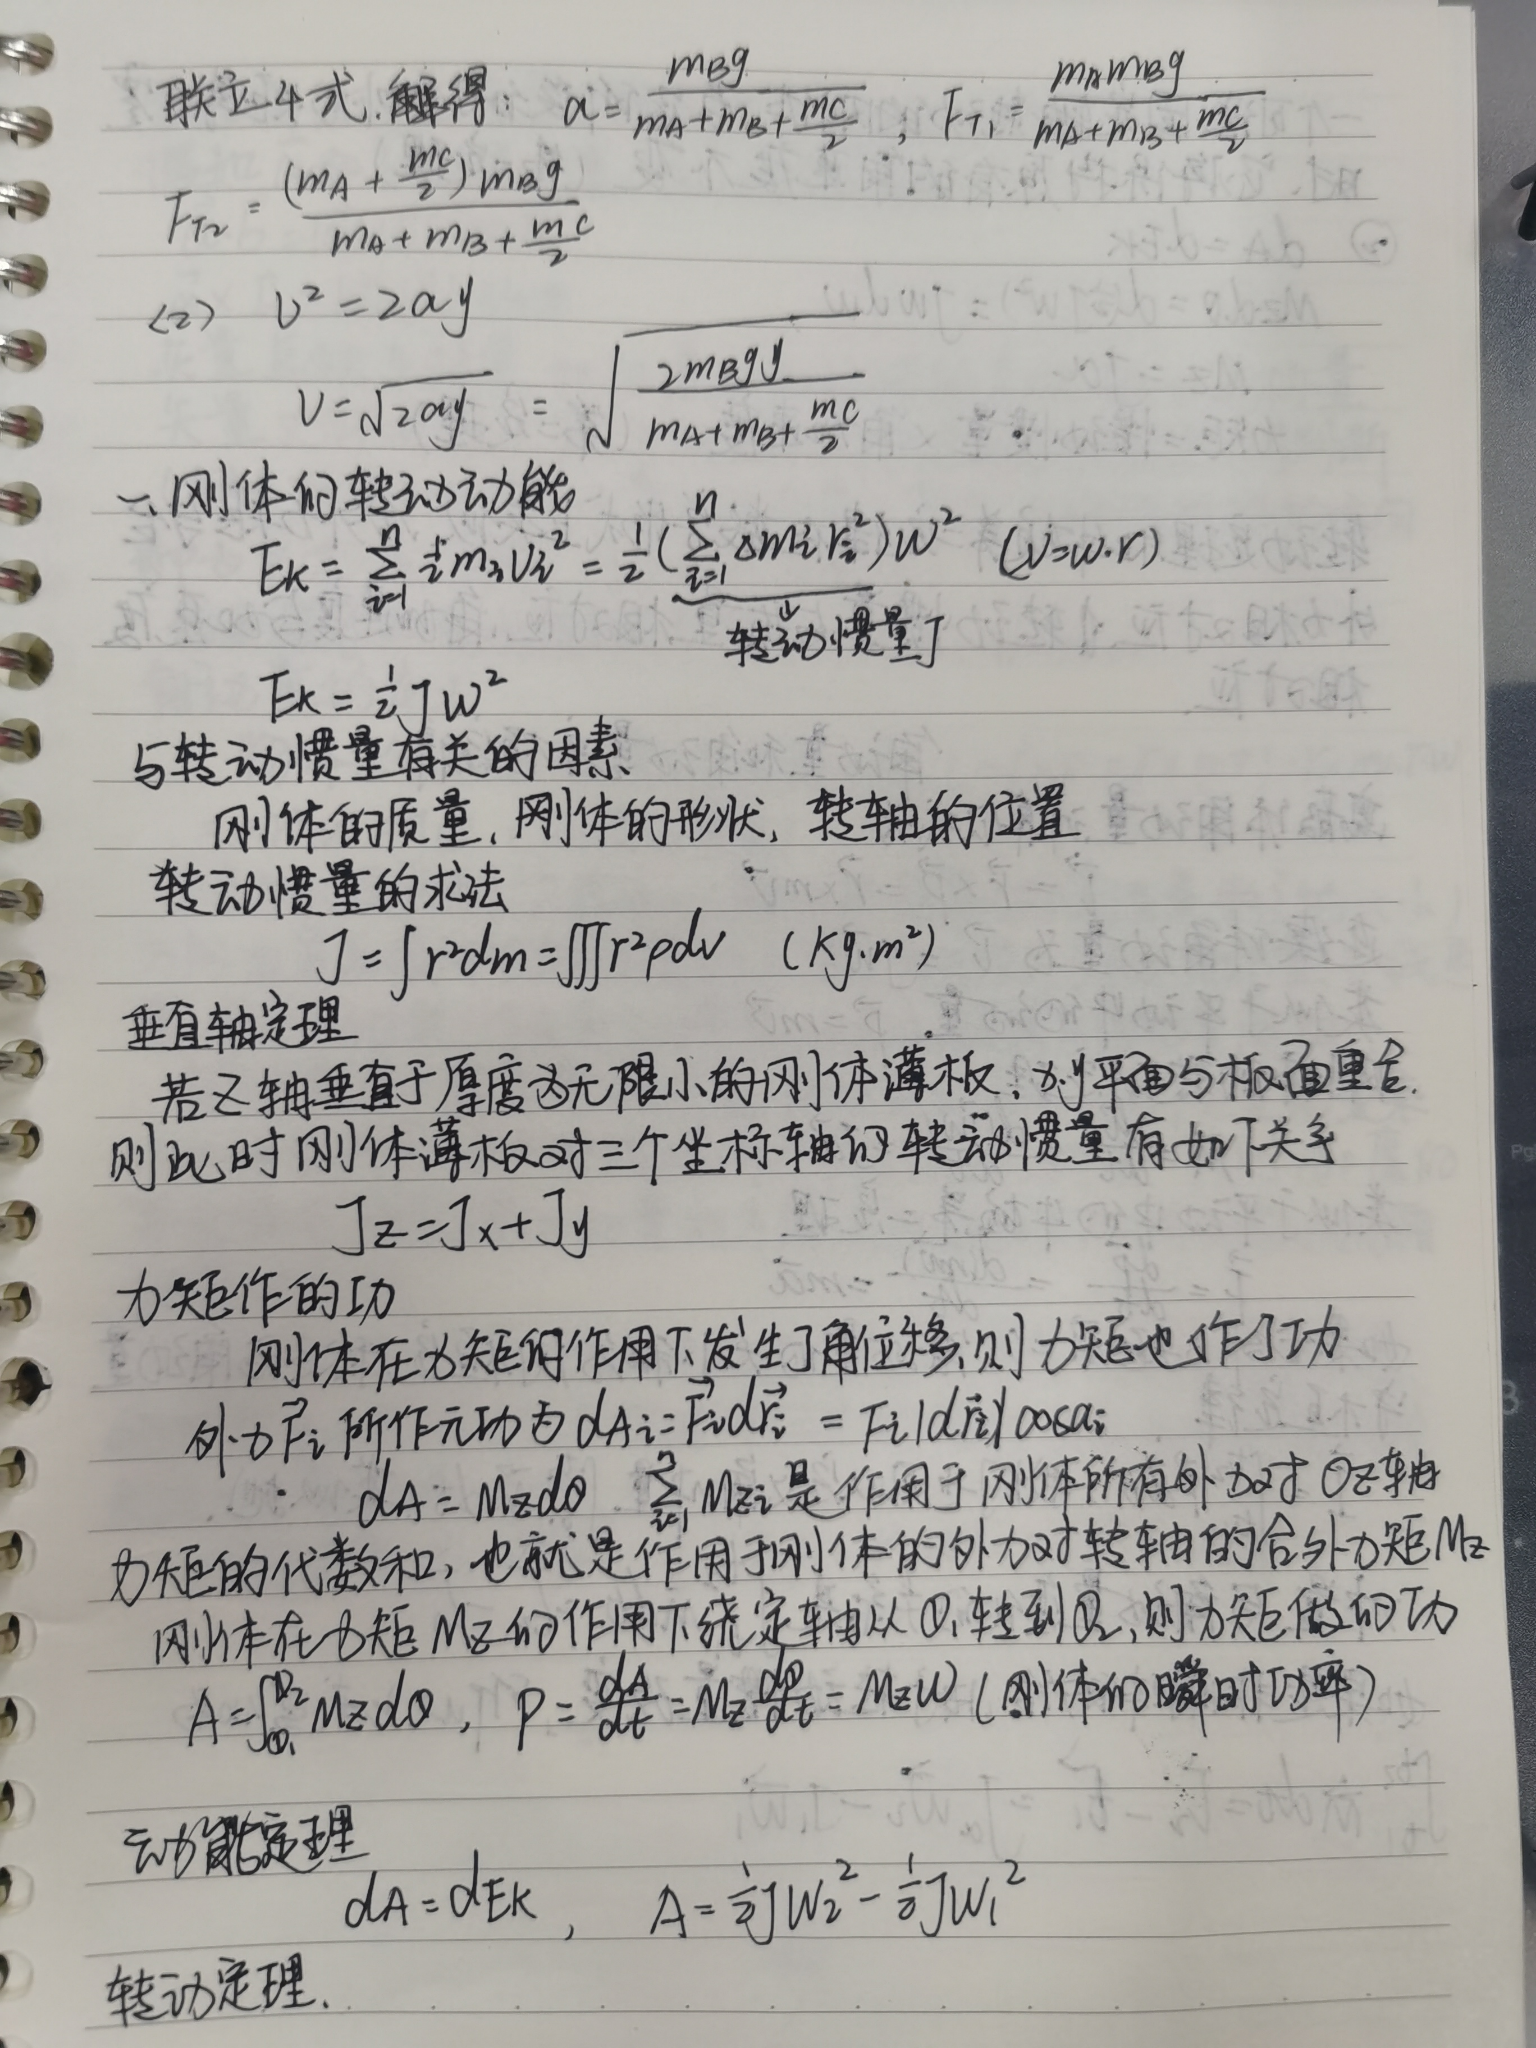 联立4式,解得: a = mBg / (mA+mB+mC/2), FT1 = mAmBg / (mA+mB+mC/2)
FT2 = (mA+mC/2)mBg / (mA+mB+mC/2)
(2) v² = 2ay
v = √2ay = √(2mBgy / (mA+mB+mC/2))
一、刚体的转动动能
Ek = Σⁿᵢ₌₁ ½mᵢvᵢ² = ½(Σⁿᵢ₌₁ Δmᵢrᵢ²)w² (v=w·r)
↓
转动惯量J
Ek = ½Jw²
与转动惯量有关的因素
刚体的质量,刚体的形状,转轴的位置
转动惯量的求法
J = ∫r²dm = ∭r²ρdv (kg·m²)
垂直轴定理
若Z轴垂直于厚度为无限小的刚体薄板,xy平面与板面重合.
则此时刚体薄板对三个坐标轴的转动惯量有如下关系
Jz = Jx + Jy
力矩作的功
刚体在力矩的作用下发生了角位移,则力矩也作了功
外力F⃗i所作元功为 dAi = F⃗i dr⃗i = Fi|dr⃗i|cosαi
dA = Mzdθ Σⁿᵢ₌₁ Mzi是作用于刚体所有外力对Oz轴
力矩的代数和,也就是作用于刚体的外力对转轴的合外力矩Mz
刚体在力矩Mz的作用下绕定轴从θ₁转到θ₂,则力矩做的功
A = ∫θ₁^θ₂ Mzdθ, P = dA/dt = Mz dθ/dt = Mzw (刚体的瞬时功率)
动能定理
dA = dEk, A = ½Jw₂² - ½Jw₁²
转动定理.